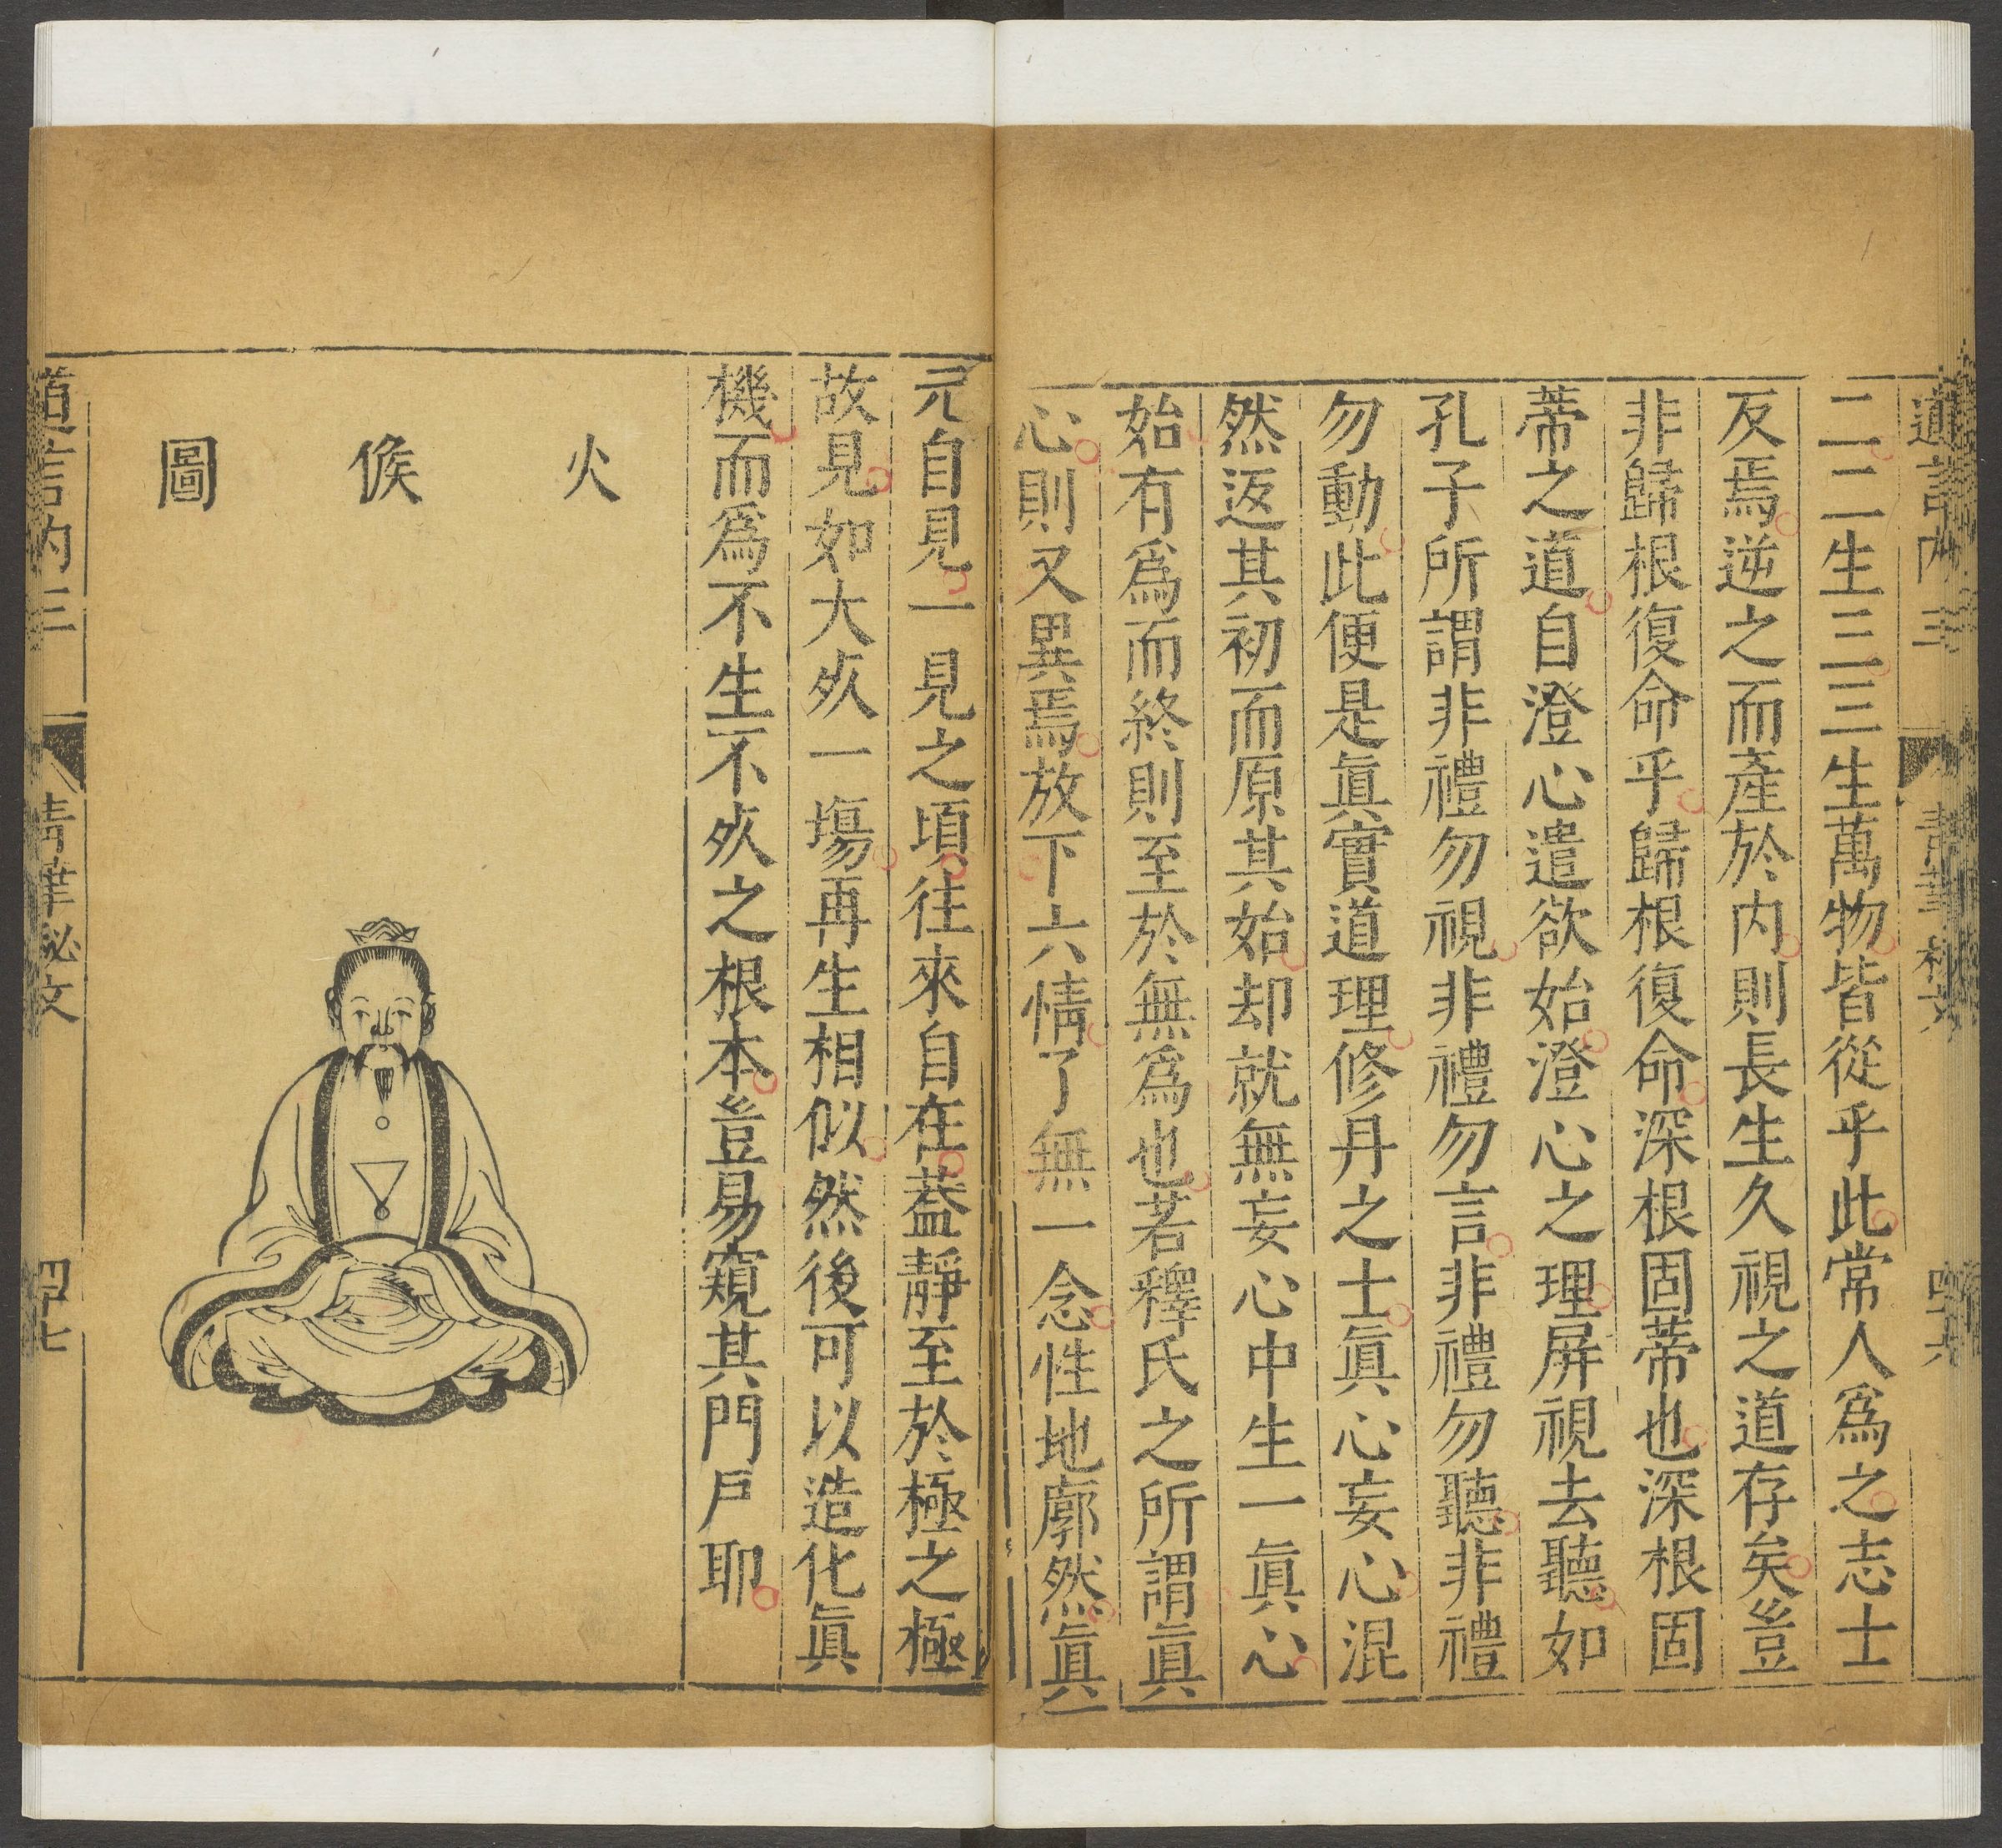 道言內三
青華秘文
四十六
二二生三三生萬物皆從乎此常人爲之志士
反焉逆之而產於內則長生久視之道存矣豈
非歸根復命乎歸根復命深根固蒂也深根固
蒂之道自澄心遣欲始澄心之理屏視去聽如
孔子所謂非禮勿視非禮勿言非禮勿聽非禮
勿動此便是眞實道理修丹之士眞心妄心混
然返其初而原其始却就無妄心中生一眞心
始有爲而終則至於無爲也若釋氏之所謂眞
心則又異焉放下六情了無一念性地廓然眞
元自見一見之頃往來自在葢靜至於極之極
故見如大死一塲再生相似然後可以造化眞
機而爲不生不死之根本豈易窺其門戶耶
火候圖
道言內三
青華秘文
四十七